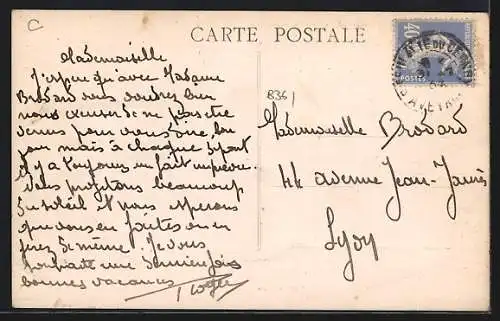 C
CARTE POSTALE
40
POSTES
B36
Mademoiselle
J'espère qu'avec Madame
Brodard vous voudrez bien
nous excuser de ne pas être
venus pour vous dire bon
jour mais à chaque
il y a toujours un fait imprévu.
Vous profitons beaucoup
du soleil et nous espérons
que vous en faites
de même. Je vous
souhaite une dernière fois
bonnes vacances
Roger
Mademoiselle Brodard
44 avenue Jean-Jaurès
Lyon